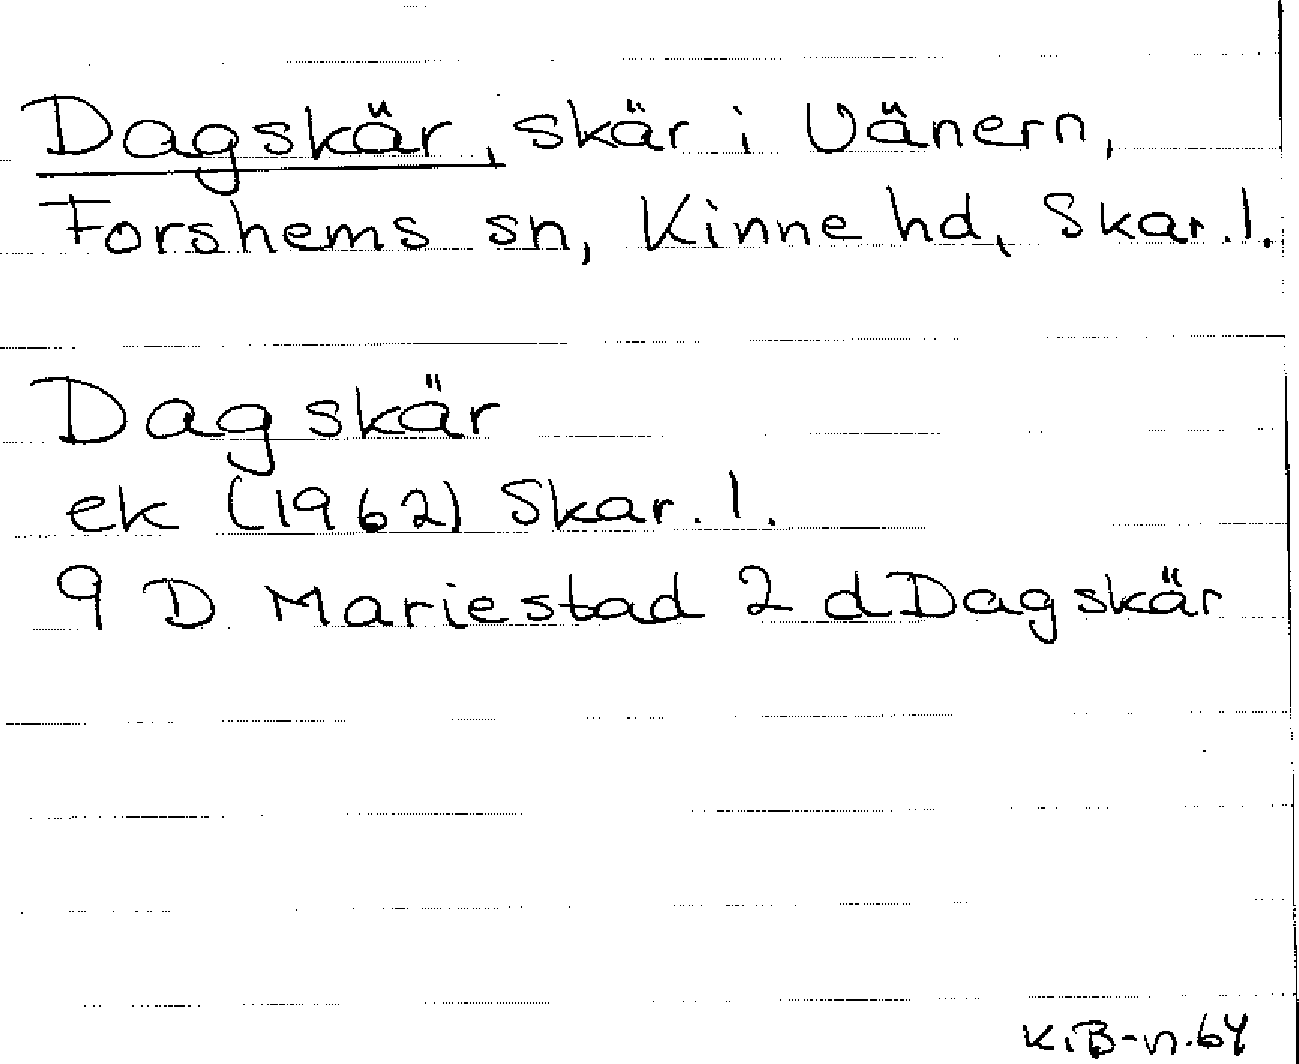 Dagskär, skär i Vänern,
Forshems sn, Kinne hd, Skar. l.
Dagskär
ek (1962) Skar. l.
9 D Mariestad 2 d Dagskär
K.B-n.64